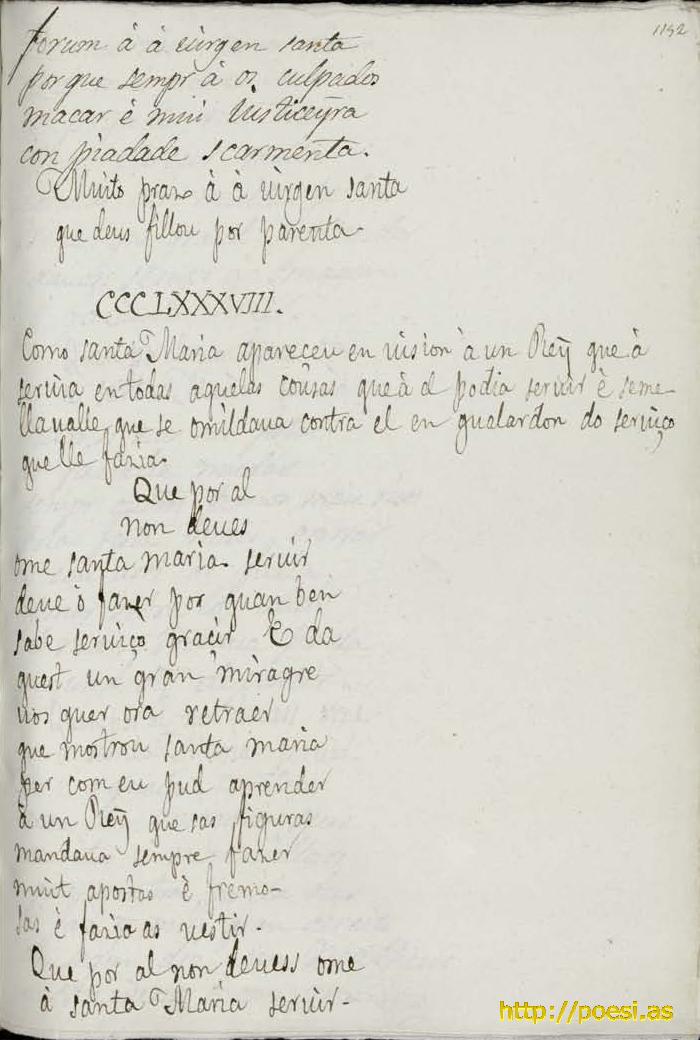 1192
forum à à uirgen santa
porque sempr à os culpados
macar è mui iusticeyra
con piadade scarmenta.
Muito praz à à uirgen santa
que deus fillou por parenta.
CCCLXXXVIII.
Como santa Maria apareceu en uision à un Reÿ que à
seruia en todas aquelas cousas que à el podia seruir è seme-
llaualle que se omildaua contra el en gualardon do seruiço
que lle fazia.
Que por al
non deues
ome santa maria seruir
deue o fazer por quan ben
sabe seruiço gracir E da
quest un gran miragre
uos quer ora retraer
que mostrou santa maria
per com eu pud aprender
à un Reÿ que sas figuras
mandaua sempre fazer
muit apostas è fremo-
sas è fazia as uestir.
Que por al non deuess ome
à santa Maria seruir.
http://poesi.as